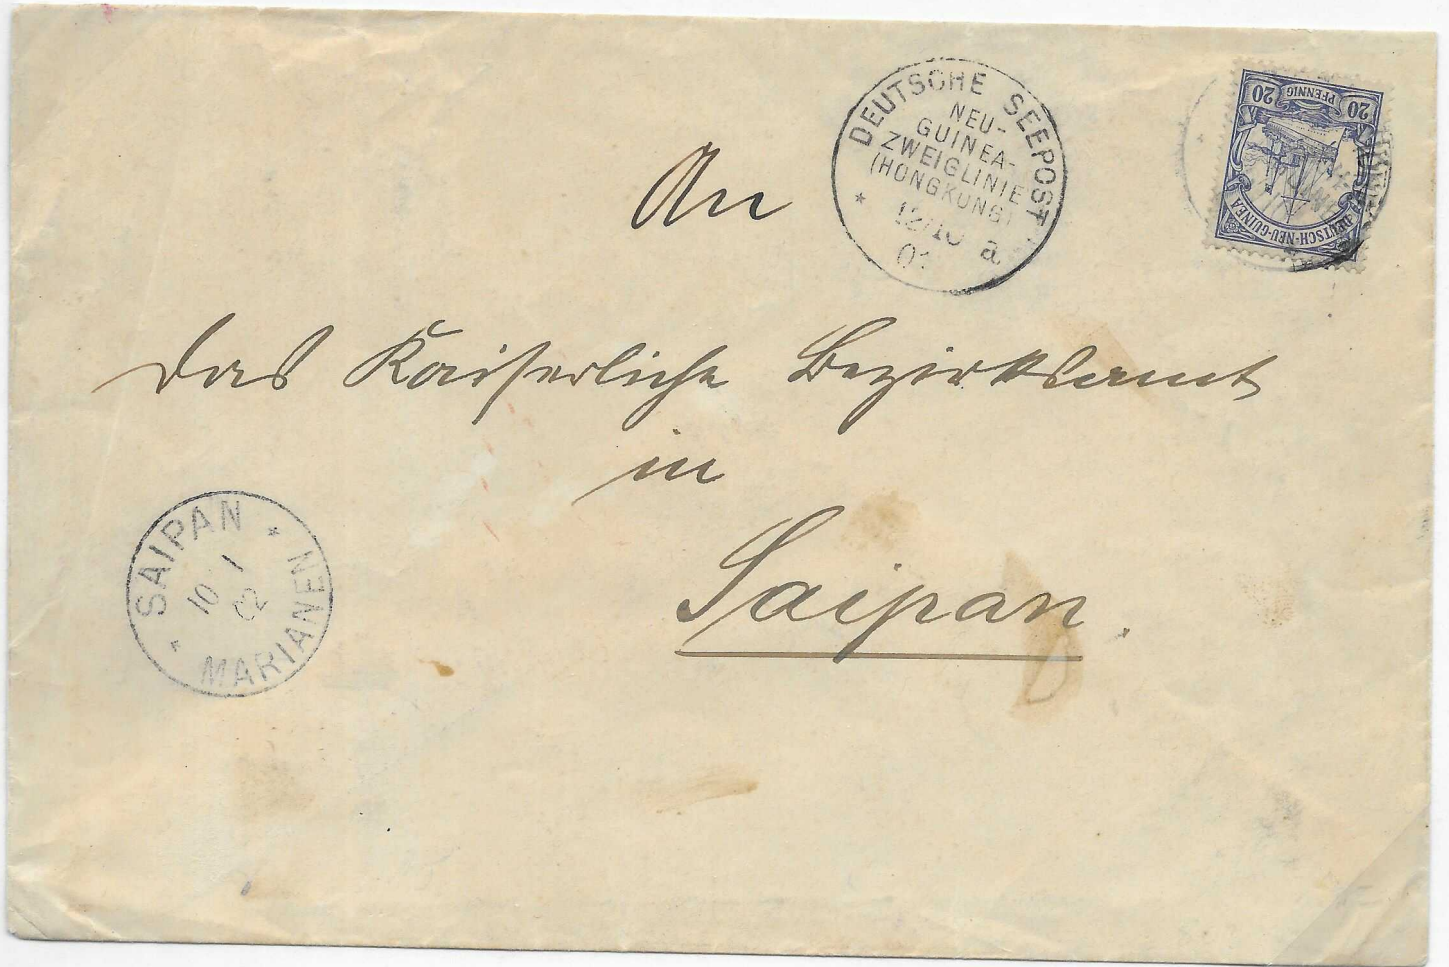 DEUTSCHE SEEPOST
NEU-
GUINEA-
ZWEIGLINIE
(HONGKONG)
12/10 a
01
20 PFENNIG 20
DEUTSCH-NEU-GUINEA
An
das Kaiserliche Bezirksamt
in
Saipan.
SAIPAN
10 1
02
MARIANEN